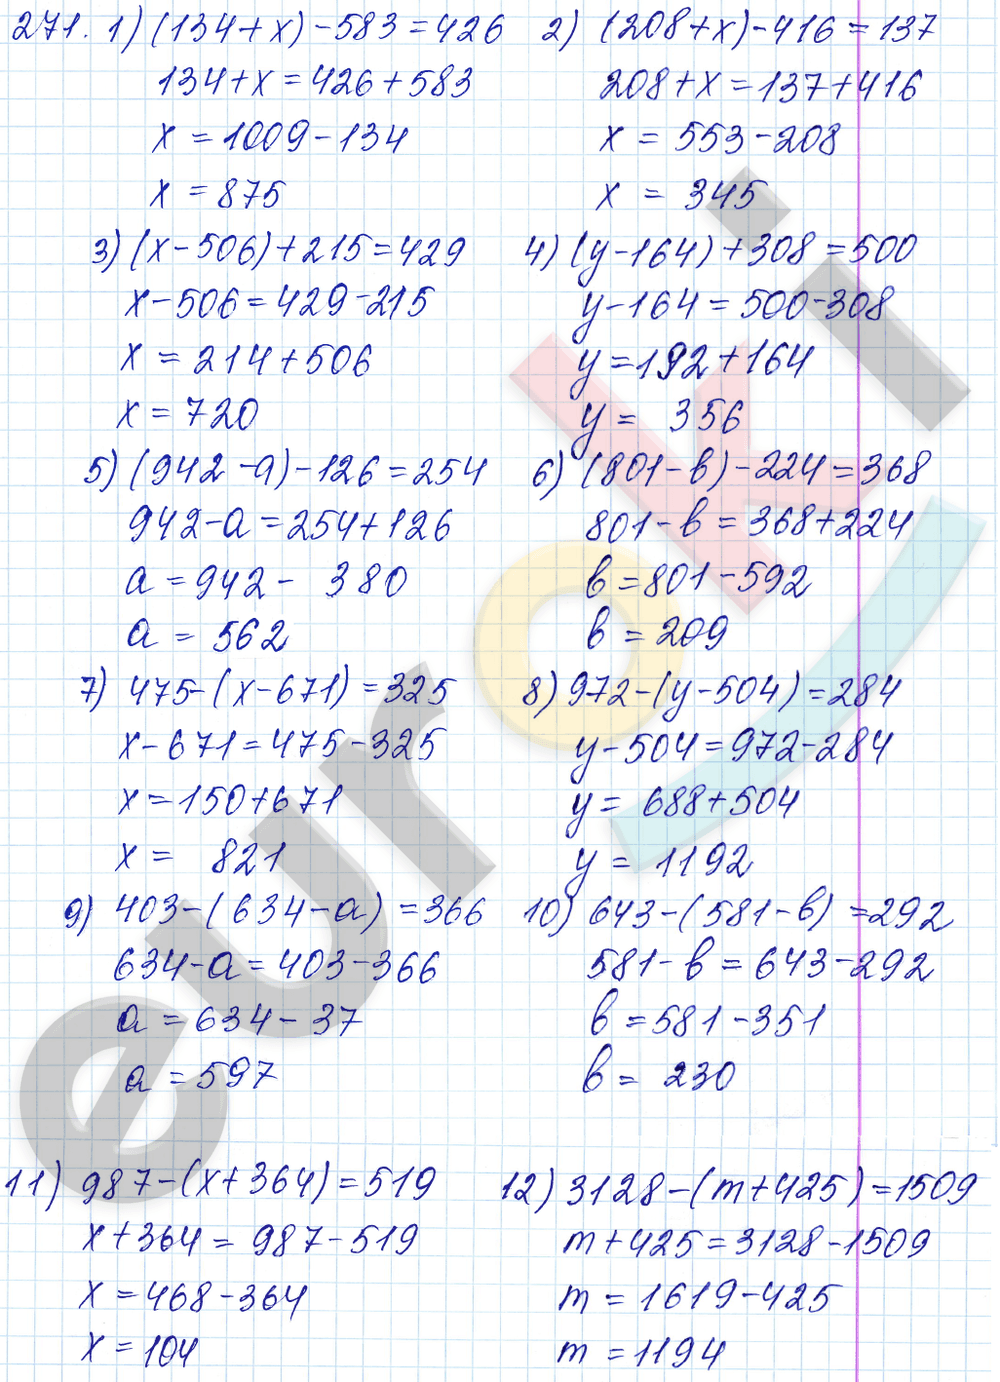 271. 1) (134+x)-583=426
134+x=426+583
x=1009-134
x=875
2) (208+x)-416=137
208+x=137+416
x=553-208
x=345
3) (x-506)+215=429
x-506=429-215
x=214+506
x=720
4) (y-164)+308=500
y-164=500-308
y=192+164
y=356
5) (942-a)-126=254
942-a=254+126
a=942-380
a=562
6) (801-b)-224=368
801-b=368+224
b=801-592
b=209
7) 475-(x-671)=325
x-671=475-325
x=150+671
x=821
8) 972-(y-504)=284
y-504=972-284
y=688+504
y=1192
9) 403-(634-a)=366
634-a=403-366
a=634-37
a=597
10) 643-(581-b)=292
581-b=643-292
b=581-351
b=230
11) 987-(x+364)=519
x+364=987-519
x=468-364
x=104
12) 3128-(m+425)=1509
m+425=3128-1509
m=1619-425
m=1194
euroki